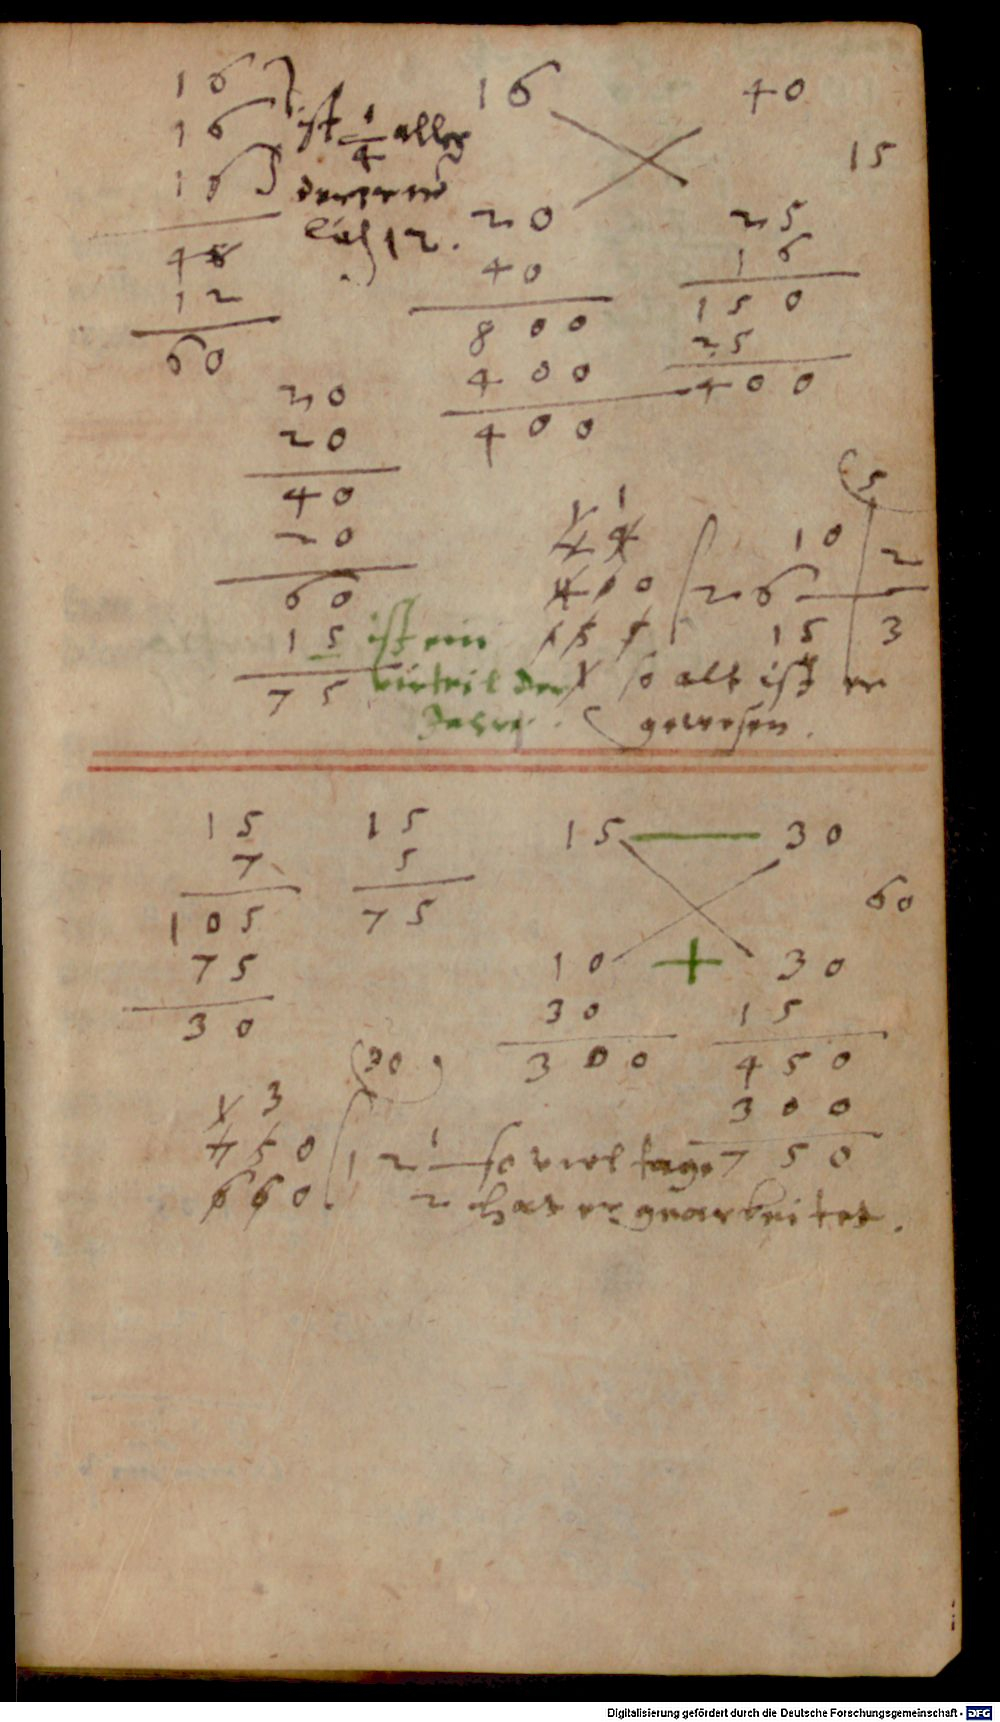 16
16 ist 1/4 aller
16
48
12
60
16 40
15
20 25
40 16
800 150
400 25
400 400
20
20
40
20
60
15 ist ein
75 virteil der
Jahre.
1 1
4 4
4 0 0 26 10 / 15 (5 2 / 3
1 5 5
1
so alt ist er
gewesen.
15
7
105
75
30
15
5
75
15 — 30
60
10 + 30
30 15
300 450
300
750
(30)
1 3
4 5 0 12 1/2 so viel tage
6 6 0. hat er gearbeitet.
Digitalisierung gefördert durch die Deutsche Forschungsgemeinschaft - DFG